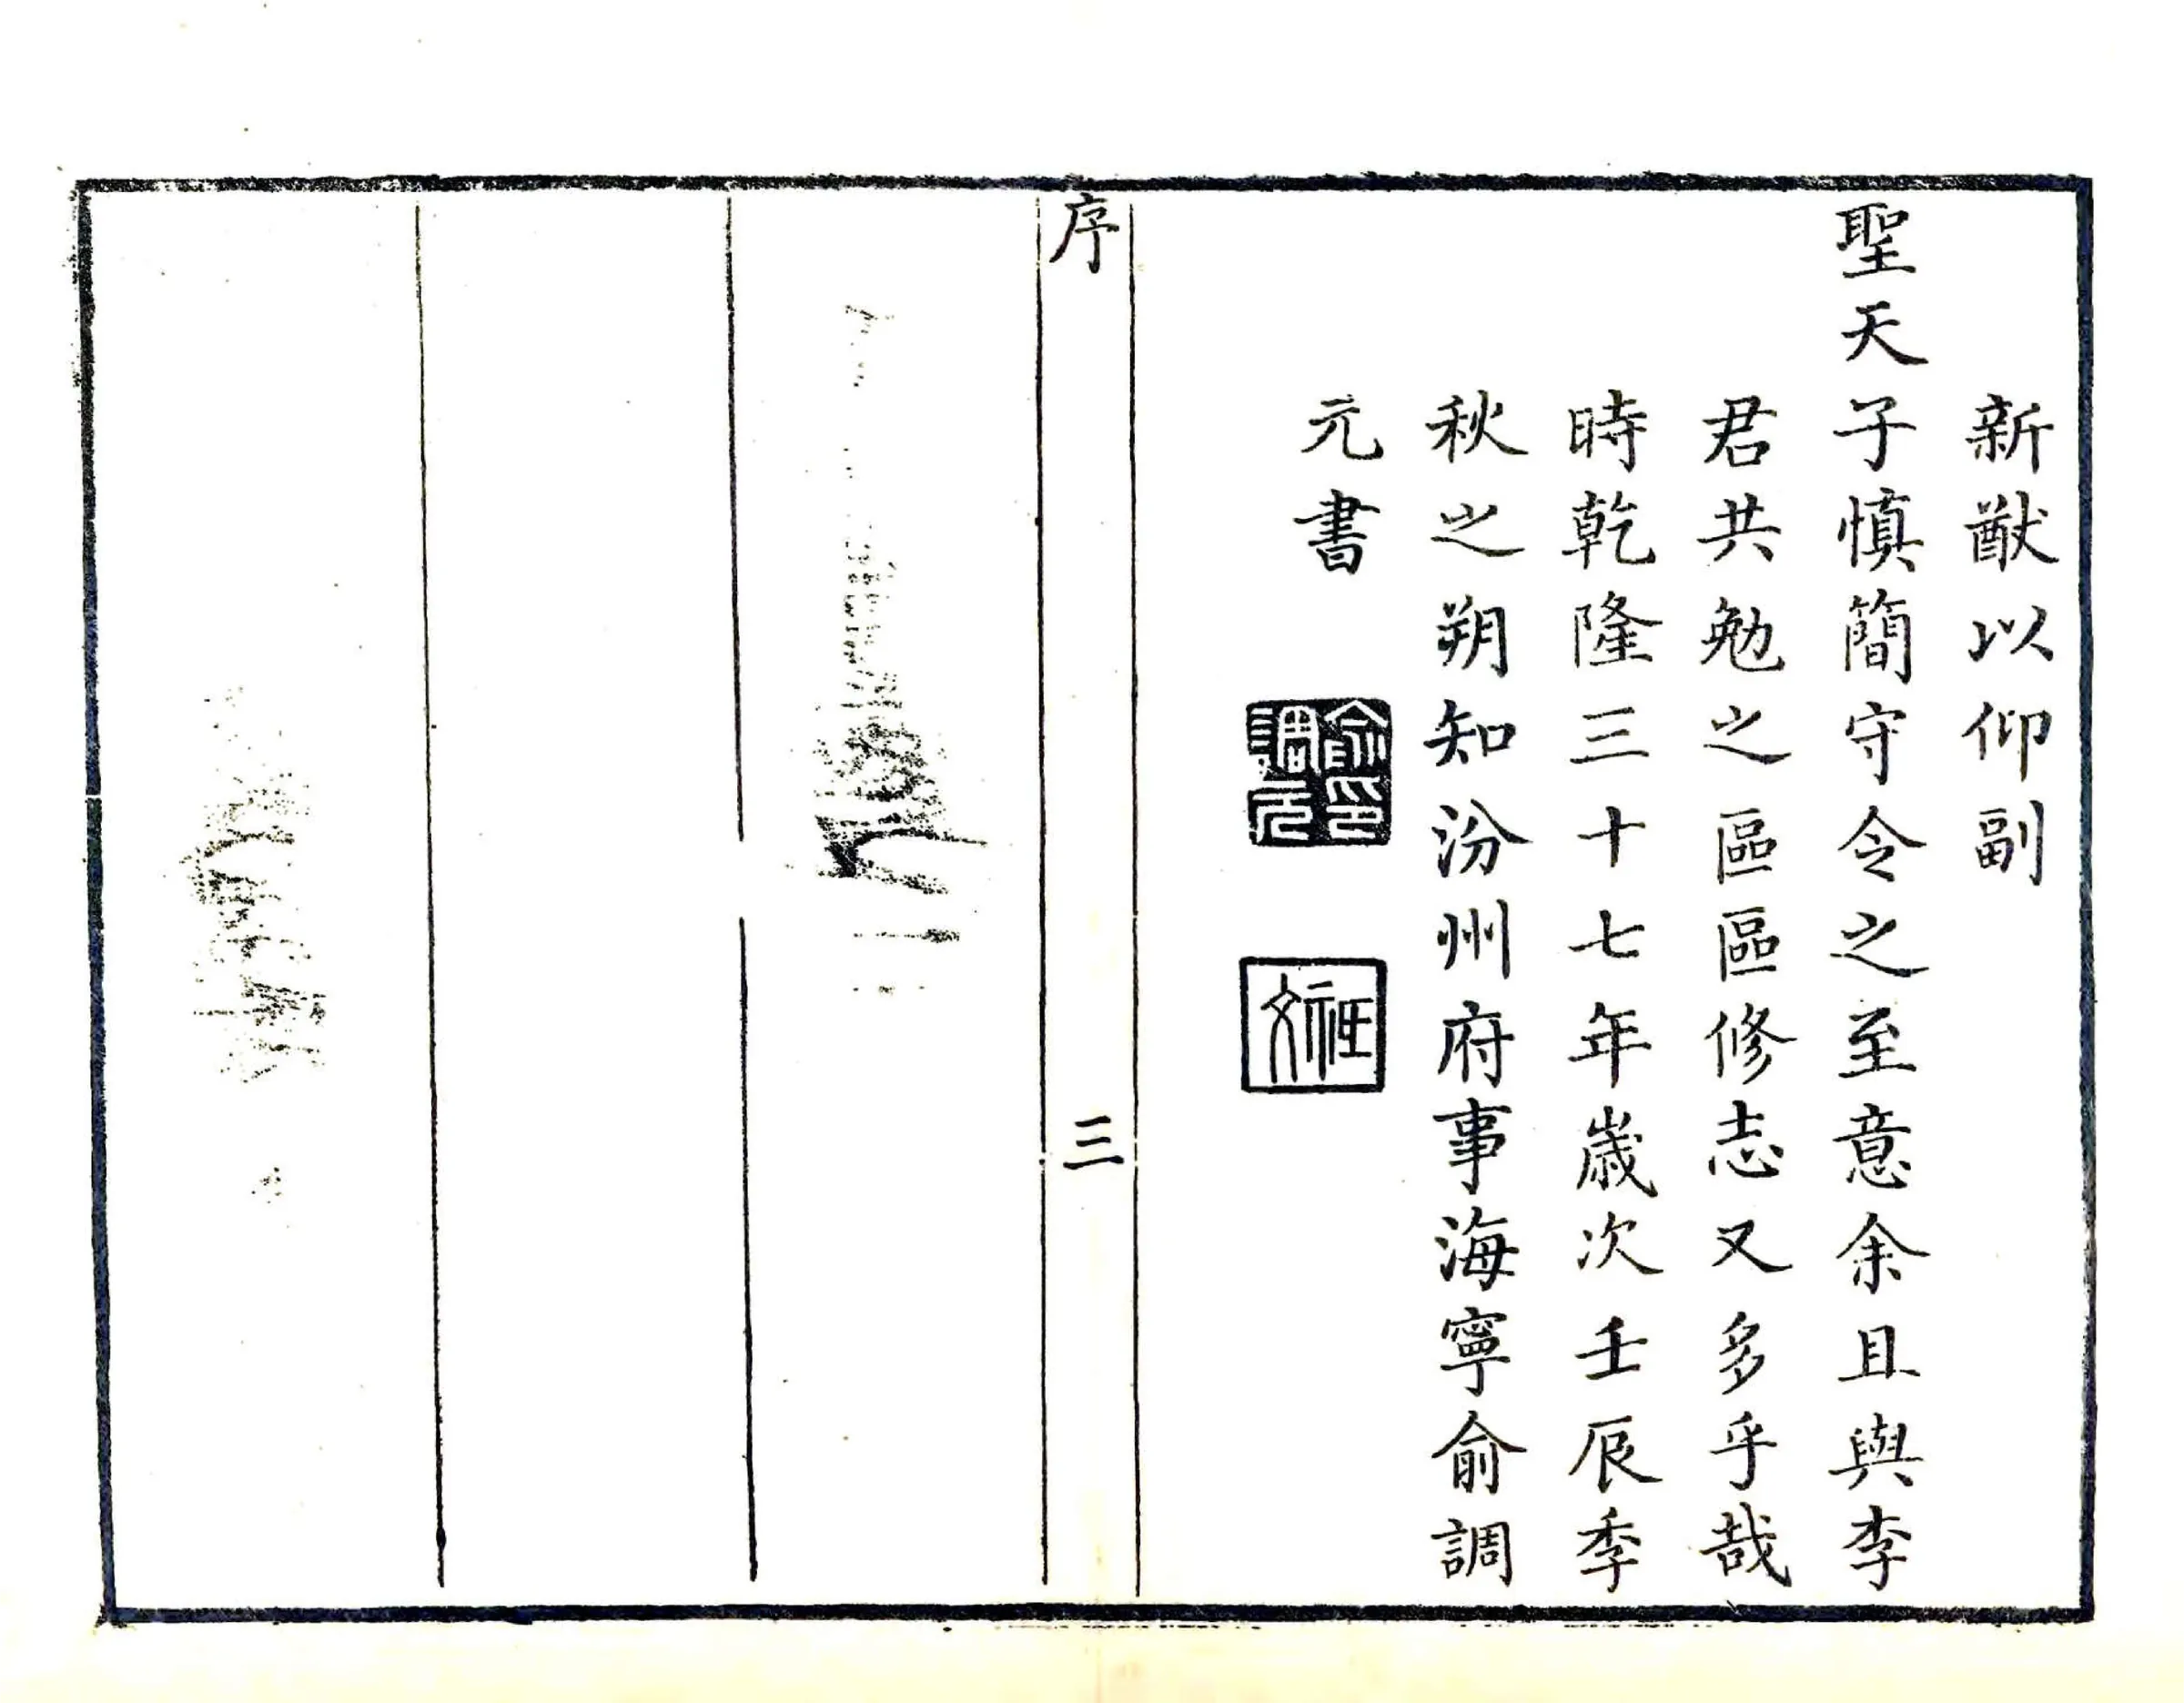 新猷以仰副
聖天子慎簡守令之至意余且與李
君共勉之區區修志又多乎哉
時乾隆三十七年歲次壬辰季
秋之朔知汾州府事海寧俞調
元書
俞印
調元
序
三